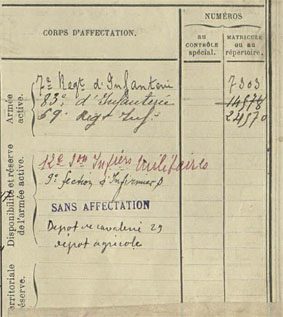 CORPS D'AFFECTATION.
NUMÉROS
AU CONTRÔLE spécial.
MATRICULE ou au répertoire.
Armée active.
7e Regt d'Infanterie 7303
83e d'Infanterie 14578
59e Regt Inf. 24570
Disponibilité et réserve de l'armée active.
12e Son Infiers Militaires
9e Section d'Infirmiers
SANS AFFECTATION
Dépôt de cavalerie 29
dépôt agricole
erritoriale
éserve.